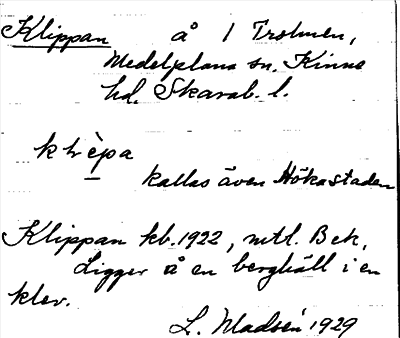 Klippan å 1 Trolmen,
Medelplana sn. Kinne
hd. Skarab. l.
kallas även Hökastaden
Klippan kb. 1922, mtl. Bek.
Ligger å en berghäll i en
klev.
L. Madsén 1929